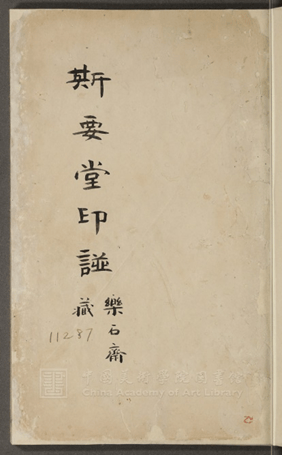 斯要堂印譜
樂石齋
藏
11287
中國美術學院圖書館
China Academy of Art Library